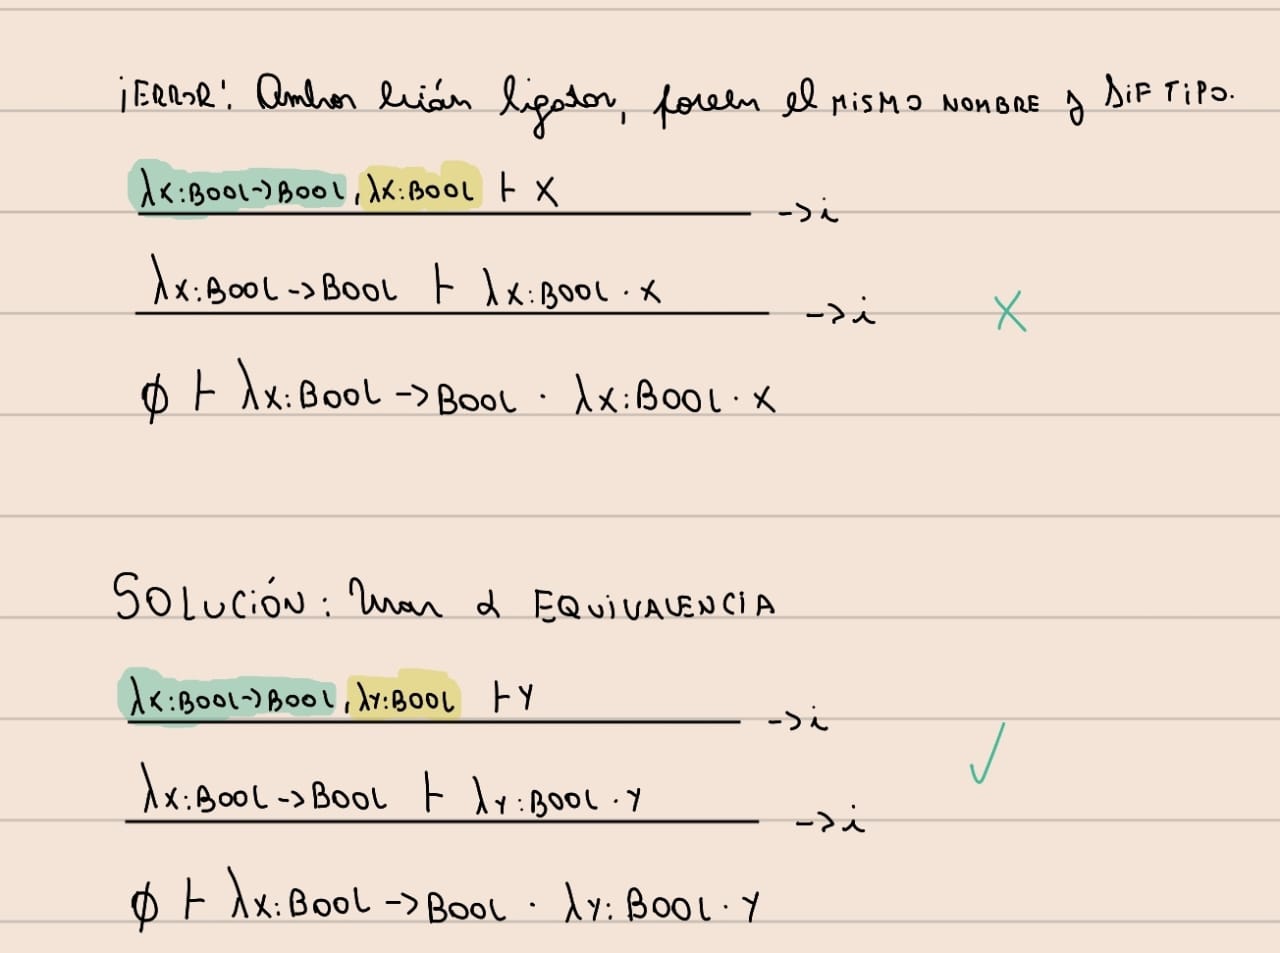 ¡ERROR!: Ambas están ligadas, poseen el MISMO NOMBRE y DIF TIPO.
λx:BOOL->BOOL, λx:BOOL ⊢ X
->i
λx:BOOL->BOOL ⊢ λx:BOOL·X
->i
X
ϕ ⊢ λx:BOOL->BOOL · λx:BOOL·X
SOLUCIÓN: Usar α EQUIVALENCIA
λx:BOOL->BOOL, λY:BOOL ⊢ Y
->i
✓
λx:BOOL->BOOL ⊢ λY:BOOL·Y
->i
ϕ ⊢ λx:BOOL->BOOL · λY:BOOL·Y